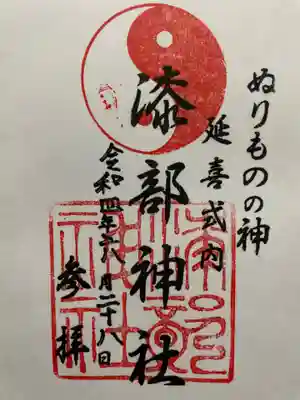 ぬりものの神
延喜式内
漆部神社
令和四年八月二十八日
参拝